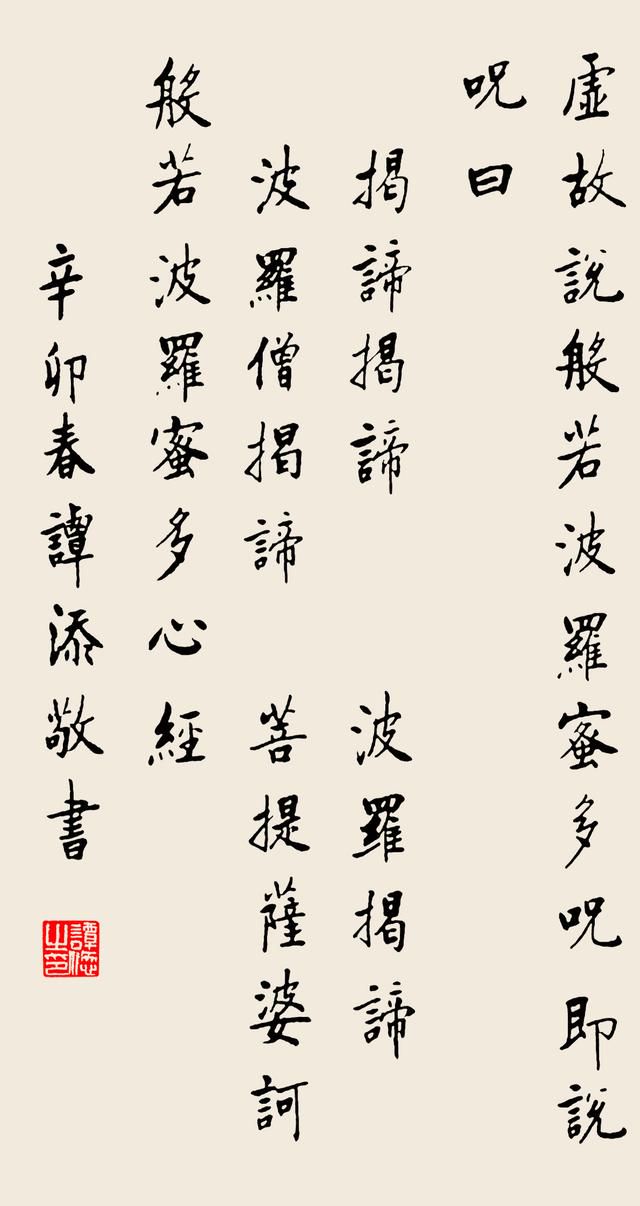 虛故説般若波羅蜜多呪即説
呪曰
揭諦揭諦 波羅揭諦
波羅僧揭諦 菩提薩婆訶
般若波羅蜜多心經
辛卯春譚添敬書
譚添之印